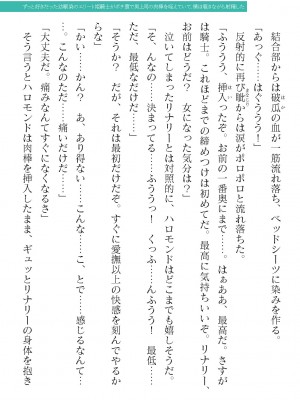 ずっと好きだった幼馴染のエリート姫騎士がボテ腹で美上司の肉棒を咥えていた。僕は覗きながら射精した
結合部からは破瓜の血が一筋流れ落ち、ベッドシーツに染みを作る。
「あっぐ……はぐううう！」
反射的に再び眦から涙がポロポロと流れ落ちた。
「ふうううう、挿入ったぞ。お前の一番奥にまで……。はぁああ、最高だ。さすが
は騎士。これほどまでの締めつけは初めてだ。最高に気持ちいいぞ。リナリー、
お前はどうだ？　女になった気分は？」
泣いてしまったリナリーとは対照的に、ハロモンドはどこまでも嬉しそうだ。
「そ、そんなの……決まってる……ふううっ！　くっふ……んふうう！　最低……
ただ、最低なだけだ……」
「そうか？　だが、それは最初だけだぞ。すぐに愛撫以上の快感を刻んでやるか
らな」
「か……快、かん？　あ、あり得ない……こんな……こ、とで……感じるなんて
……。こんなのただ……痛いだけだ……」
「大丈夫だ。痛みなんてすぐになくなるさ」
そう言うとハロモンドは肉棒を挿入したまま、ギュッとリナリーの身体を抱き